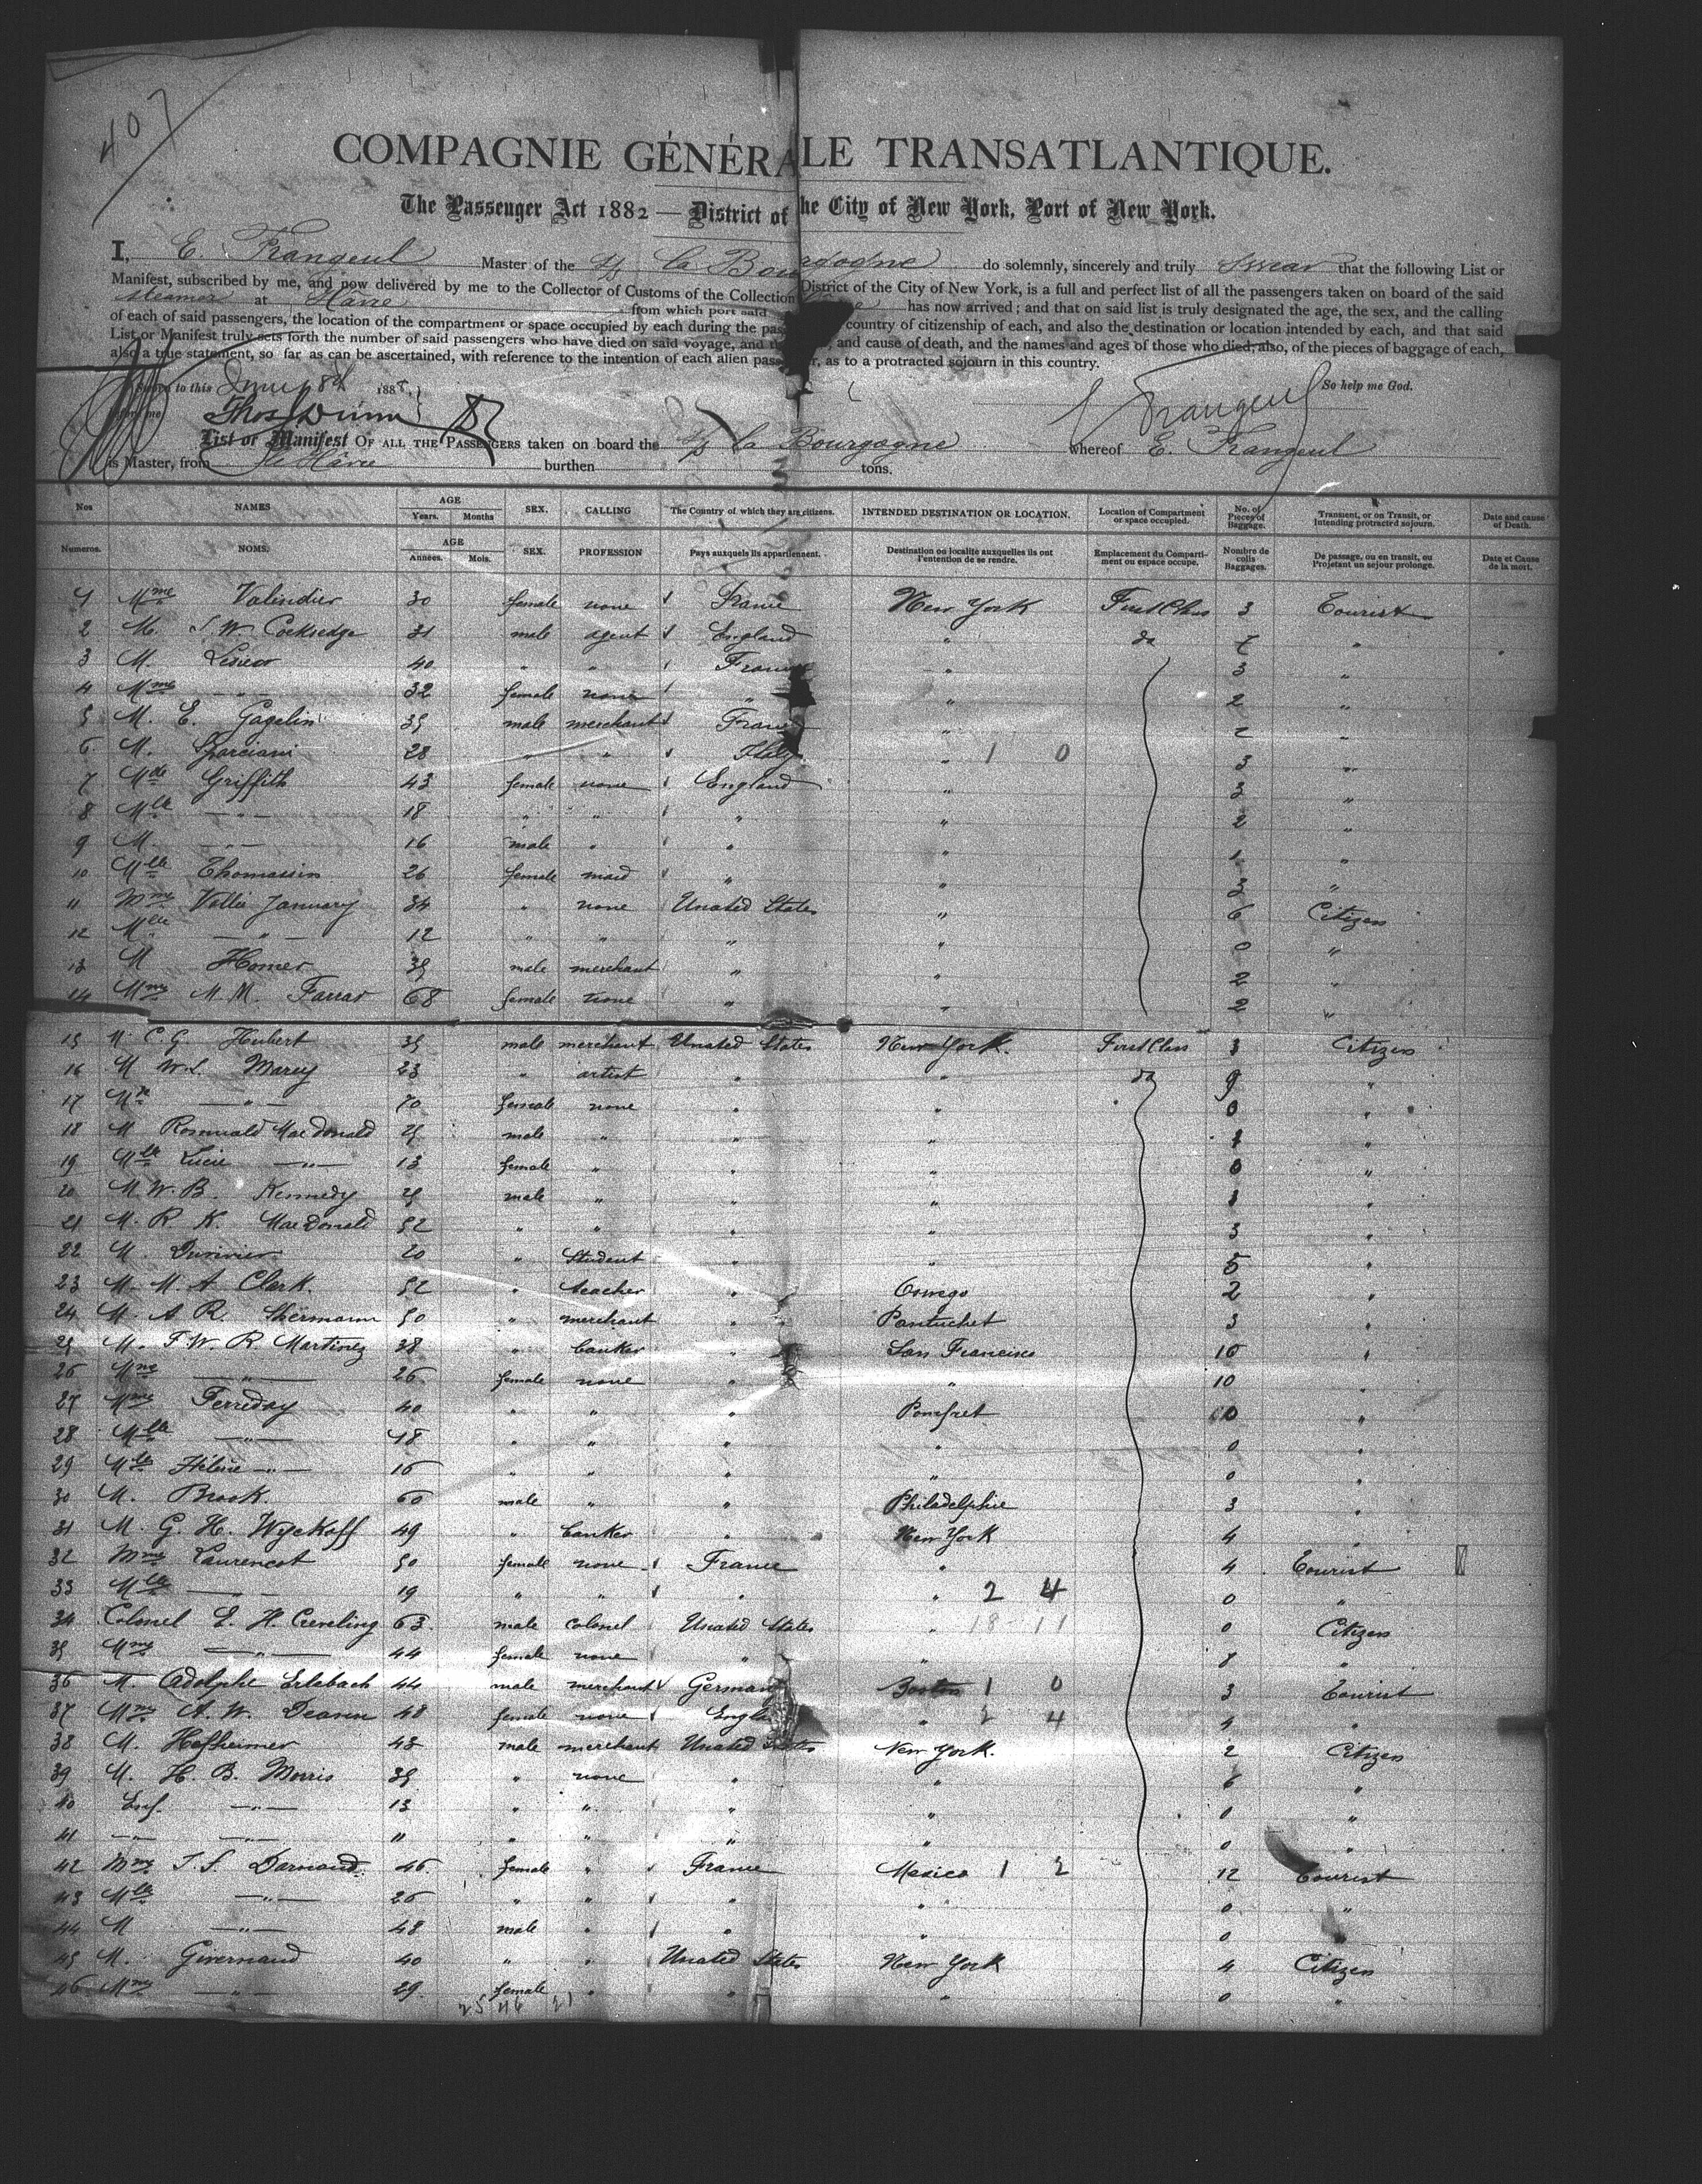 407
COMPAGNIE GÉNÉRALE TRANSATLANTIQUE.
The Passenger Act 1882 — District of the City of New York, Port of New York.
I, E. Frangeul Master of the S/S La Bourgogne do solemnly, sincerely and truly swear that the following List or
Manifest, subscribed by me, and now delivered by me to the Collector of Customs of the Collection District of the City of New York, is a full and perfect list of all the passengers taken on board of the said
steamer at Havre from which port said has now arrived; and that on said list is truly designated the age, the sex, and the calling
of each of said passengers, the location of the compartment or space occupied by each during the pas country of citizenship of each, and also the destination or location intended by each, and that said
List or Manifest truly sets forth the number of said passengers who have died on said voyage, and t , and cause of death, and the names and ages of those who died; also, of the pieces of baggage of each,
also a true statement, so far as can be ascertained, with reference to the intention of each alien passenger, as to a protracted sojourn in this country.
Sworn to this 8th 188 So help me God.
before me E Frangeul
List or Manifest OF ALL THE PASSENGERS taken on board the S/S La Bourgogne whereof E. Frangeul
is Master, from Le Hâvre burthen tons.
Nos NAMES AGE Years. Months SEX. CALLING The Country of which they are citizens. INTENDED DESTINATION OR LOCATION. Location of Compartment or space occupied. No. of Pieces of Baggage. Transient, or on Transit, or Intending protracted sojourn. Date and cause of Death.
Numeros. NOMS. AGE Années. Mois. SEX. PROFESSION Pays auxquels ils appartiennent. Destination ou localité auxquelles ils ont l'entention de se rendre. Emplacement du Compartiment ou espace occupe. Nombre de colis Baggages. De passage, ou en transit, ou Projetant un sejour prolonge. Date et Cause de la mort.
1 Mme Valindier 30 female none France New York First Class 3 Tourist
2 M. J. W. Cocksedge 31 male agent England " do "
3 M. Lesieur 40 " " France " 3 "
4 Mme —"— 32 female none " " 2 "
5 M. E. Gagelin 35 male merchant France " 2 "
6 M. 28 " " Italy " 1 0 3 "
7 Mde Griffith 43 female none England " 3 "
8 Mlle —"— 18 " " " " 2 "
9 M. —"— 16 male " " " 1 "
10 Mlle Thomassin 26 female maid " " 3 "
11 Mme Vallé January 34 " none Unated States " 6 Citizen
12 Mlle —"— 12 " " " " 0 "
13 M Homer 35 male merchant " " 2 "
14 Mme M. M. Farrar 68 female none " " 2 "
15 M. C. G. Hubert 35 male merchant Unated States New York. First Class 3 Citizen
16 M W. L. Marcy 23 " artist " " do 9 "
17 Me —"— 70 female none " " 0 "
18 M Romuald MacDonald 25 male " " " 1 "
19 Mlle Lucie —"— 13 female " " " 0 "
20 M. W. B. Kennedy 25 male " " " 1 "
21 M. R. K. MacDonald 52 " " " " 3 "
22 M. Duvivier 20 " Student " " 5 "
23 M. M. A. Clark. 52 " teacher " Oswego 2 "
24 M. A. R. Shermann 50 " merchant " Pantuchet 3 "
25 M. F. W. R. Martinez 38 " banker " San Francisco 10 "
26 Mme —"— 26 female none " " 10 "
27 Mme Ferreday 40 " " " Pomfret 10 "
28 Mlle —"— 18 " " " " 0 "
29 Mlle Hélène —"— 16 " " " " 0 "
30 M. Brook. 60 male " " Philadelphie 3 "
31 M. G. H. Wyckoff 49 " banker " New York 4 "
32 Mme Laurencot 50 female none France " 4 Tourist
33 Mlle —"— 19 " " " " 2 4 0 "
34 Colonel E. H. Creveling 63. male colonel Unated States " 18 11 0 Citizen
35 Mme —"— 44 female none " " 8 "
36 M. Adolphe Erlabach 44 male merchant German Boston 1 0 3 Tourist
37 Mme A. W. 48 female none Engla " 2 4 4 "
38 M. Hofheimer 43 male merchant Unated States New York. 2 Citizen
39 M. H. B. Morris 35 " none " " 6 "
40 Enf. —"— 13 " " " " 0 "
41 —"— —"— 11 " " " " 0 "
42 Mme T. S. Darnaud 46 female " France Mexico 1 2 12 Tourist
43 Mlle —"— 26 " " " " 0 "
44 M —"— 48 male " " " 0
45 M. Givernaud 40 " " Unated States New York 4 Citizen
46 Mme —"— 29. female " " " 0 "
25 46 21